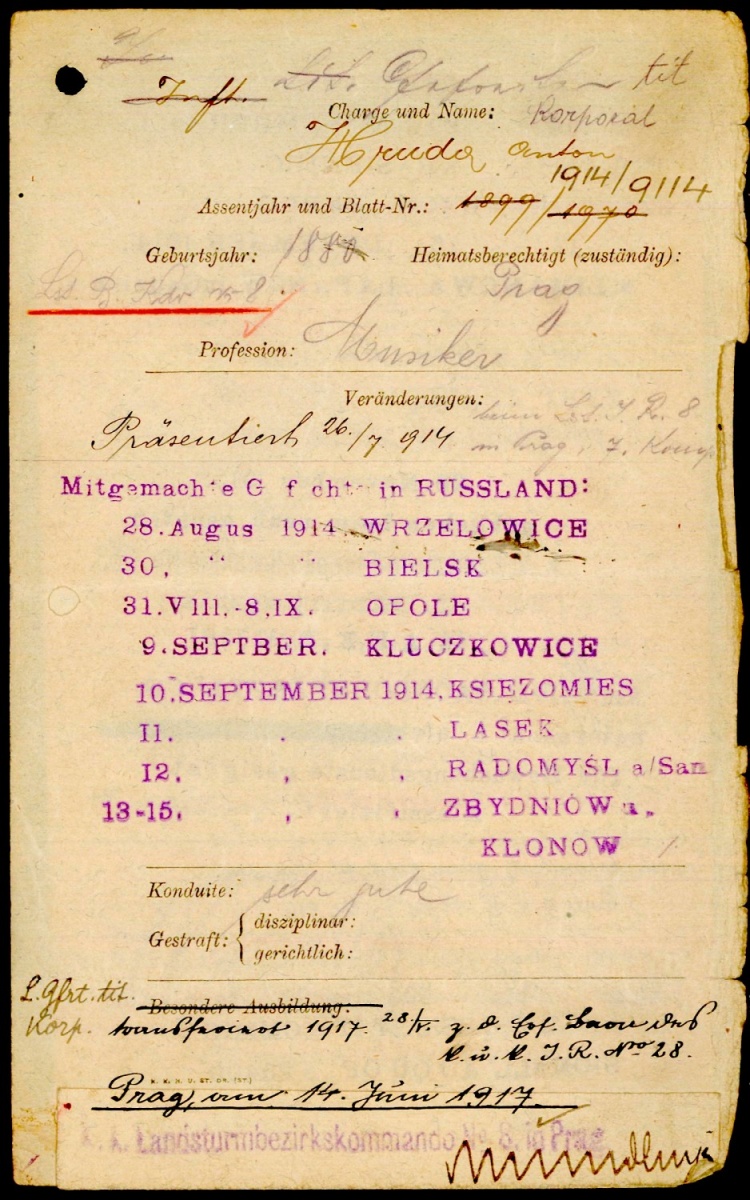 Inft. Lst. Gefreiter tit
Charge und Name: Korporal
Hruda Anton
1914/9114
Assentjahr und Blatt-Nr.: 1899/1970
Geburtsjahr: 1880 Heimatsberechtigt (zuständig):
Lst. B. Kdo N 8. Prag
Profession: Musiker
Veränderungen:
beim Lst. I. R. 8.
Präsentiert 26./7 1914 in Prag, 7. Komp
Mitgemachte Gefechte in RUSSLAND:
28. Augus 1914 WRZELOWICE
30, " " BIELSK
31. VIII.-8, IX. OPOLE
9. SEPTBER. KLUCZKOWICE
10. SEPTEMBER 1914. KSIEZOMIES
11. , . LASEK
12. , , RADOMYŚL a/San
13-15. , , ZBYDNIÓW u.
KLONOW
Konduite: sehr gute
Gestraft: { disziplinar:
gerichtlich:
L. Gfrt. tit. Besondere Ausbildung:
Korp. transferiert 1917 28/V. z. d. Ers. Baon des
k. u. k. I. R. Nro 28.
Prag, am 14. Juni 1917.
k. k. Landsturmbezirkskommando No 8, in Prag